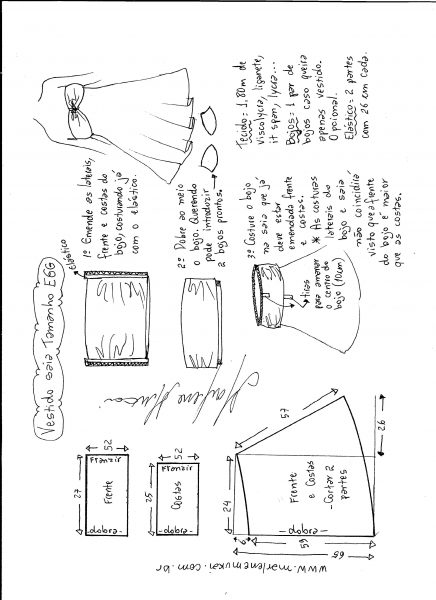 Vestido saia Tamanho EGG
elástico
1º Emende as laterais,
frente e costas do
bojo, costurando já
com o elástico.
2º Dobre ao meio
o bojo. Querendo
pode introduzir
2 bojos prontos.
3º Costure o bojo
na saia que já
deve estar
emendada frente
e costas.
* As costuras
laterais do
bojo e saia
não coincidirá
visto que a frente
do bojo é maior
que as costas.
tiras
para amarrar
o centro do
bojo (10cm)
Tecido = 1,80m de
viscolycra, liganete,
it span, lycra...
Bojos = 1 par de
bojos caso queira
apenas vestido.
Opcional.
Elástico = 2 partes
com 26 cm cada.
Marlene Mukai
27
52
Franzir
Frente
dobra
25
52
Franzir
Costas
dobra
24
57
26
Frente
e Costas
- Cortar 2
partes
dobra
6
59
65
www.marlenemukai.com.br